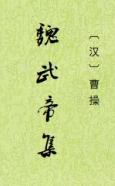 〔汉〕曹操
魏武帝集